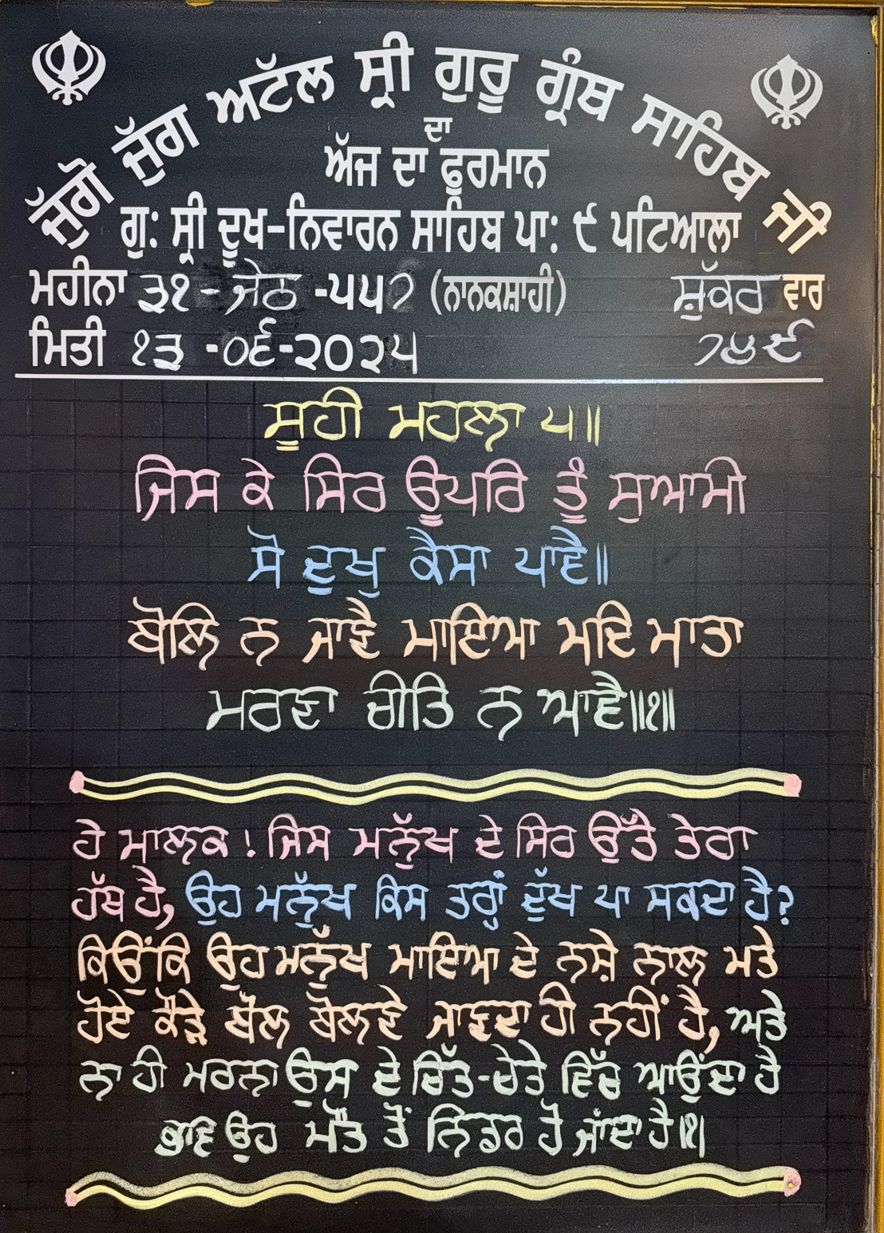 ਜੁੱਗੋ ਜੁੱਗ ਅਟੱਲ ਸ੍ਰੀ ਗੁਰੂ ਗ੍ਰੰਥ ਸਾਹਿਬ ਜੀ
ਦਾ
ਅੱਜ ਦਾ ਫੁਰਮਾਨ
ਗੁ: ਸ੍ਰੀ ਦੂਖ-ਨਿਵਾਰਨ ਸਾਹਿਬ ਪਾ: ੯ ਪਟਿਆਲਾ
ਮਹੀਨਾ ੩੧ - ਜੇਠ -੫੫੭ (ਨਾਨਕਸ਼ਾਹੀ) ਸ਼ੁੱਕਰ ਵਾਰ
ਮਿਤੀ ੧੩ -੦੬-੨੦੨੫ ੭੪੯
ਸੂਹੀ ਮਹਲਾ ੫॥
ਜਿਸ ਕੇ ਸਿਰ ਊਪਰਿ ਤੂੰ ਸੁਆਮੀ
ਸੋ ਦੁਖੁ ਕੈਸਾ ਪਾਵੈ॥
ਬੋਲਿ ਨ ਜਾਣੈ ਮਾਇਆ ਮਦਿ ਮਾਤਾ
ਮਰਣਾ ਚੀਤਿ ਨ ਆਵੈ॥੧॥
ਹੇ ਮਾਲਕ! ਜਿਸ ਮਨੁੱਖ ਦੇ ਸਿਰ ਉੱਤੇ ਤੇਰਾ
ਹੱਥ ਹੈ, ਉਹ ਮਨੁੱਖ ਕਿਸ ਤਰ੍ਹਾਂ ਦੁੱਖ ਪਾ ਸਕਦਾ ਹੈ?
ਕਿਉਂਕਿ ਉਹ ਮਨੁੱਖ ਮਾਇਆ ਦੇ ਨਸ਼ੇ ਨਾਲ ਮਤੇ
ਹੋਏ ਕੌੜੇ ਬੋਲ ਬੋਲਣੇ ਜਾਣਦਾ ਹੀ ਨਹੀਂ ਹੈ, ਅਤੇ
ਨਾ ਹੀ ਮਰਨਾ ਉਸ ਦੇ ਚਿੱਤ-ਚੇਤੇ ਵਿੱਚ ਆਉਂਦਾ ਹੈ
ਭਾਵਿ ਉਹ ਮੌਤ ਤੋਂ ਨਿਡਰ ਹੋ ਜਾਂਦਾ ਹੈ॥੧॥